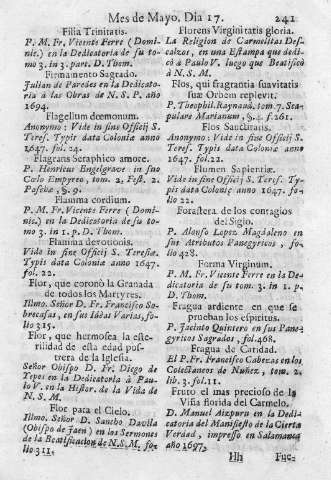 Mes de Mayo, Dia 17. 241
Filia Trinitatis.
P. M. Fr. Vicente Ferre (Domi-
nic.) en la Dedicatoria de su to-
mo 3. in 3. part. D. Thom.
Firmamento Sagrado.
Julian de Paredes en la Dedicato-
ria à las Obras de N. S. P. año
1694.
Flagellum dæmonum.
Anonymo: Vide in fine Officij S.
Teres. Typis data Coloniæ anno
1647. fol. 24.
Flagrans Seraphico amore.
P. Henricus Engelgrave in suo
Cœlo Empyreo, tom. 2. Fest. 2.
Paschæ, §. 9.
Flamma cordium.
P. M. Fr. Vicente Ferre (Domi-
nic.) en la Dedicatoria de su to-
mo 3. in 1. p. D. Thom.
Flamma devotionis.
Vide in fine Officij S. Teresiæ.
Typis data Coloniæ anno 1647.
fol. 22.
Flor, que coronò la Granada
de todos los Martyres.
Illmo. Señor D. Fr. Francisco So-
brecasas, en sus Ideas Varias, fo-
lio 315.
Flor, que hermosea la este-
rilidad de esta edad pos-
trera de la Iglesia.
Señor Obispo D. Fr. Diego de
Yepes en la Dedicatoria à Pau-
lo V. en la Histor. de la Vida de
N. S. M.
Flor para el Cielo.
Illmo. Señor D. Sancho Davila
(Obispo de Jaen) en los Sermones
de la Beatificacion de N. S. M. fo-
lio 311.
Florens Virginitatis gloria.
La Religion de Carmelitas Des-
calzos, en una Estampa que dedi-
cò à Paulo V. luego que Beatificò
à N. S. M.
Flos, qui fragrantia suavitatis
suæ Orbem replevit.
P. Theophil. Raynaud. tom. 7. Sca-
pulare Marianum, §. 4. f. 261.
Flos Sanctitatis.
Anonymo: Vide in fine Officij S.
Teres. Typis data Coloniæ anno
1647. fol. 22.
Flumen Sapientiæ.
Vide in fine Officij S. Teres. Ty-
pis data Coloniæ anno 1647. fo-
lio 22.
Forastera de los contagios
del Siglo.
P. Alonso Lopez Magdaleno en
sus Atributos Panegyricos, fo-
lio 428.
Forma Virginum.
P. M. Fr. Vicente Ferre en la De-
dicatoria de su tom. 3. in 1. p.
D. Thom.
Fragua ardiente en que se
prueban los espiritus.
P. Jacinto Quintero en sus Pane-
gyricos Sagrados, fol. 468.
Fragua de Caridad.
El P. Fr. Francisco Cabezas en los
Colectaneos de Nuñez, tom. 2.
lib. 3. fol. 11.
Fruto el mas precioso de la
Viña florida del Carmelo.
D. Manuel Aizpuru en la Dedi-
catoria del Manifiesto de la Cierta
Verdad, impresso en Salamanca
año 1687.
Hh Fue-